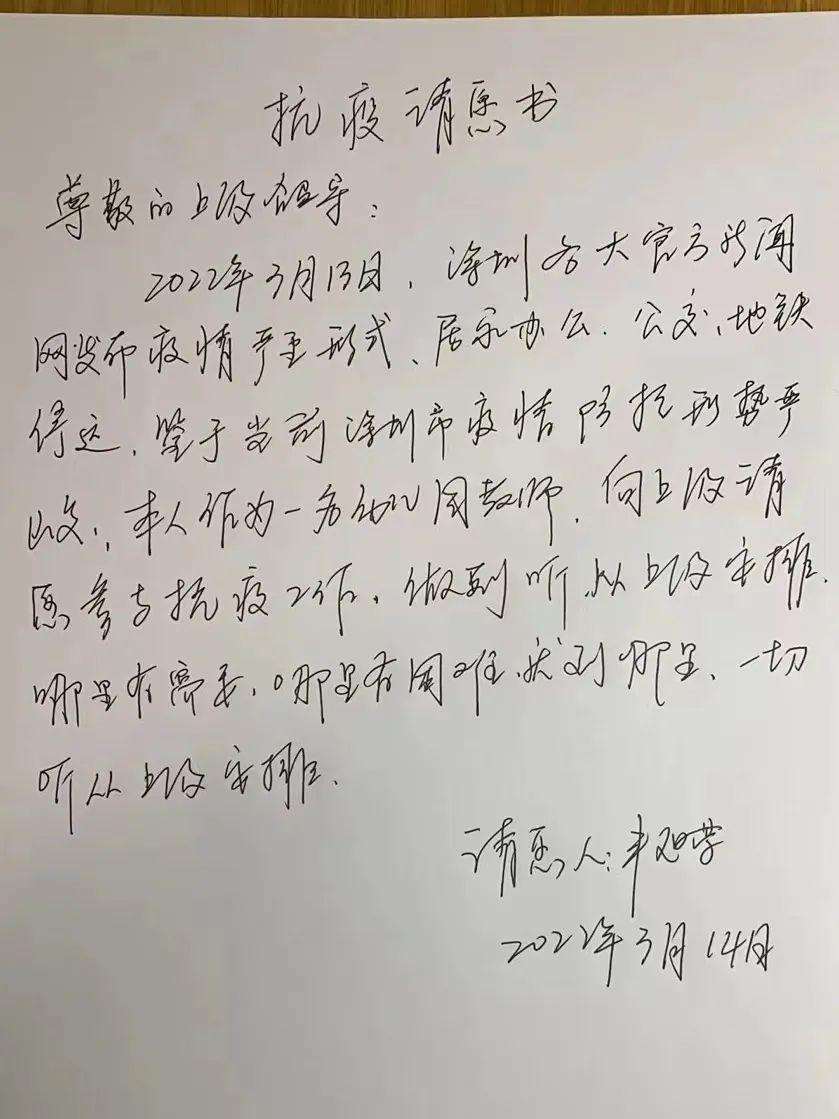 抗疫请愿书
尊敬的上级领导:
2022年3月13日,深圳各大官方新闻
网发布疫情严重形式、居家办公.公交、地铁
停运,鉴于当前深圳市疫情防控形势严
峻,本人作为一名幼儿园教师,向上级请
愿参与抗疫工作,做到听从上级安排.
哪里有需要,哪里有困难就到哪里、一切
听从上级安排.
请愿人:
2022年3月14日